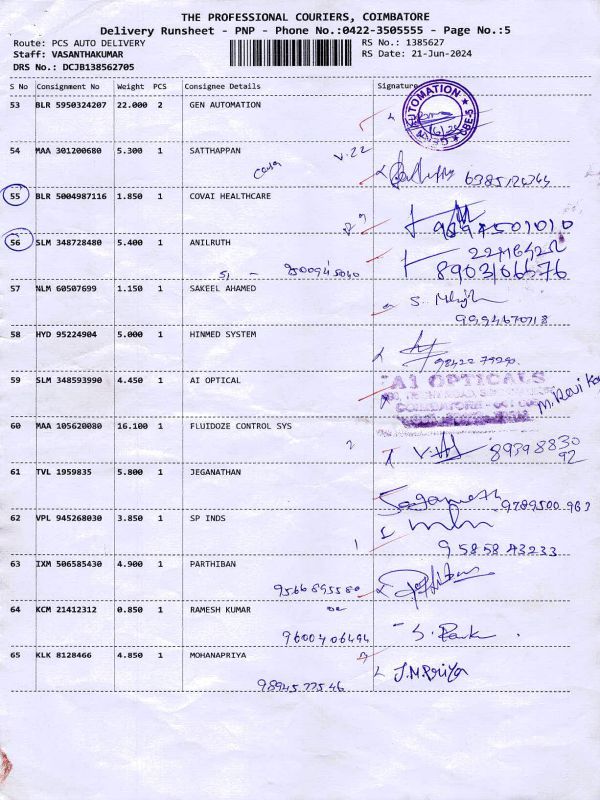 THE PROFESSIONAL COURIERS, COIMBATORE
Delivery Runsheet - PNP - Phone No.:0422-3505555 - Page No.:5
Route: PCS AUTO DELIVERY
RS No.: 1385627
Staff: VASANTHAKUMAR
RS Date: 21-Jun-2024
DRS No.: DCJB138562705
S No Consignment No Weight PCS Consignee Details Signature
53 BLR 5950324207 22.000 2 GEN AUTOMATION
AUTOMATION
54 MAA 301200680 5.300 1 SATTHAPPAN
V.22
55 BLR 5004987116 1.850 1 COVAI HEALTHCARE
9894501010
56 SLM 348728480 5.400 1 ANILRUTH
8903166576
57 NLM 60507699 1.150 1 SAKEEL AHAMED
9994670718
58 HYD 95224904 5.000 1 HINMED SYSTEM
59 SLM 348593990 4.450 1 AI OPTICAL
A1 OPTICALS
60 MAA 105620080 16.100 1 FLUIDOZE CONTROL SYS
89398830
92
61 TVL 1959835 5.800 1 JEGANATHAN
9789500963
62 VPL 945268030 3.850 1 SP INDS
9585843233
63 IXM 506585430 4.900 1 PARTHIBAN
9566895580
64 KCM 21412312 0.850 1 RAMESH KUMAR
9600406494
65 KLK 8128466 4.850 1 MOHANAPRIYA
J.M.Priya
9894577546